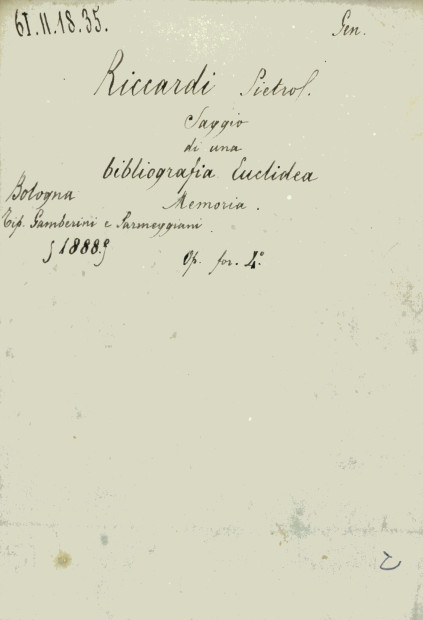 61.II.18.35.
Gen.
Riccardi Pietro.
Saggio
di una
bibliografia Euclidea
Memoria.
Bologna
Tip. Gamberini e Parmeggiani.
1888.
Op. for. 4°